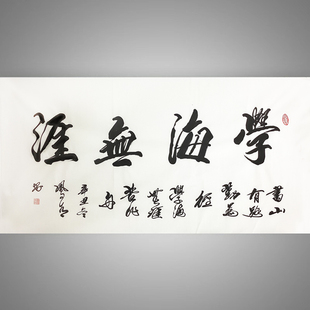 學海無涯
書山
有路
勤為
徑
學海
無涯
苦作
舟